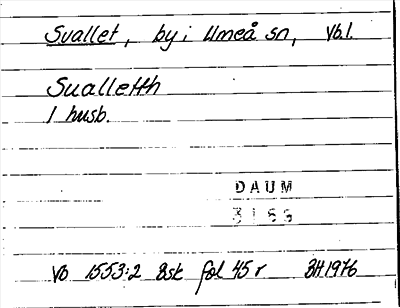 Svallet, by i Umeå sn, Vb.l.
Sualletth
1 husb.
DAUM
3166
Vb 1553:2 Bsk fol 45 r BH 1976